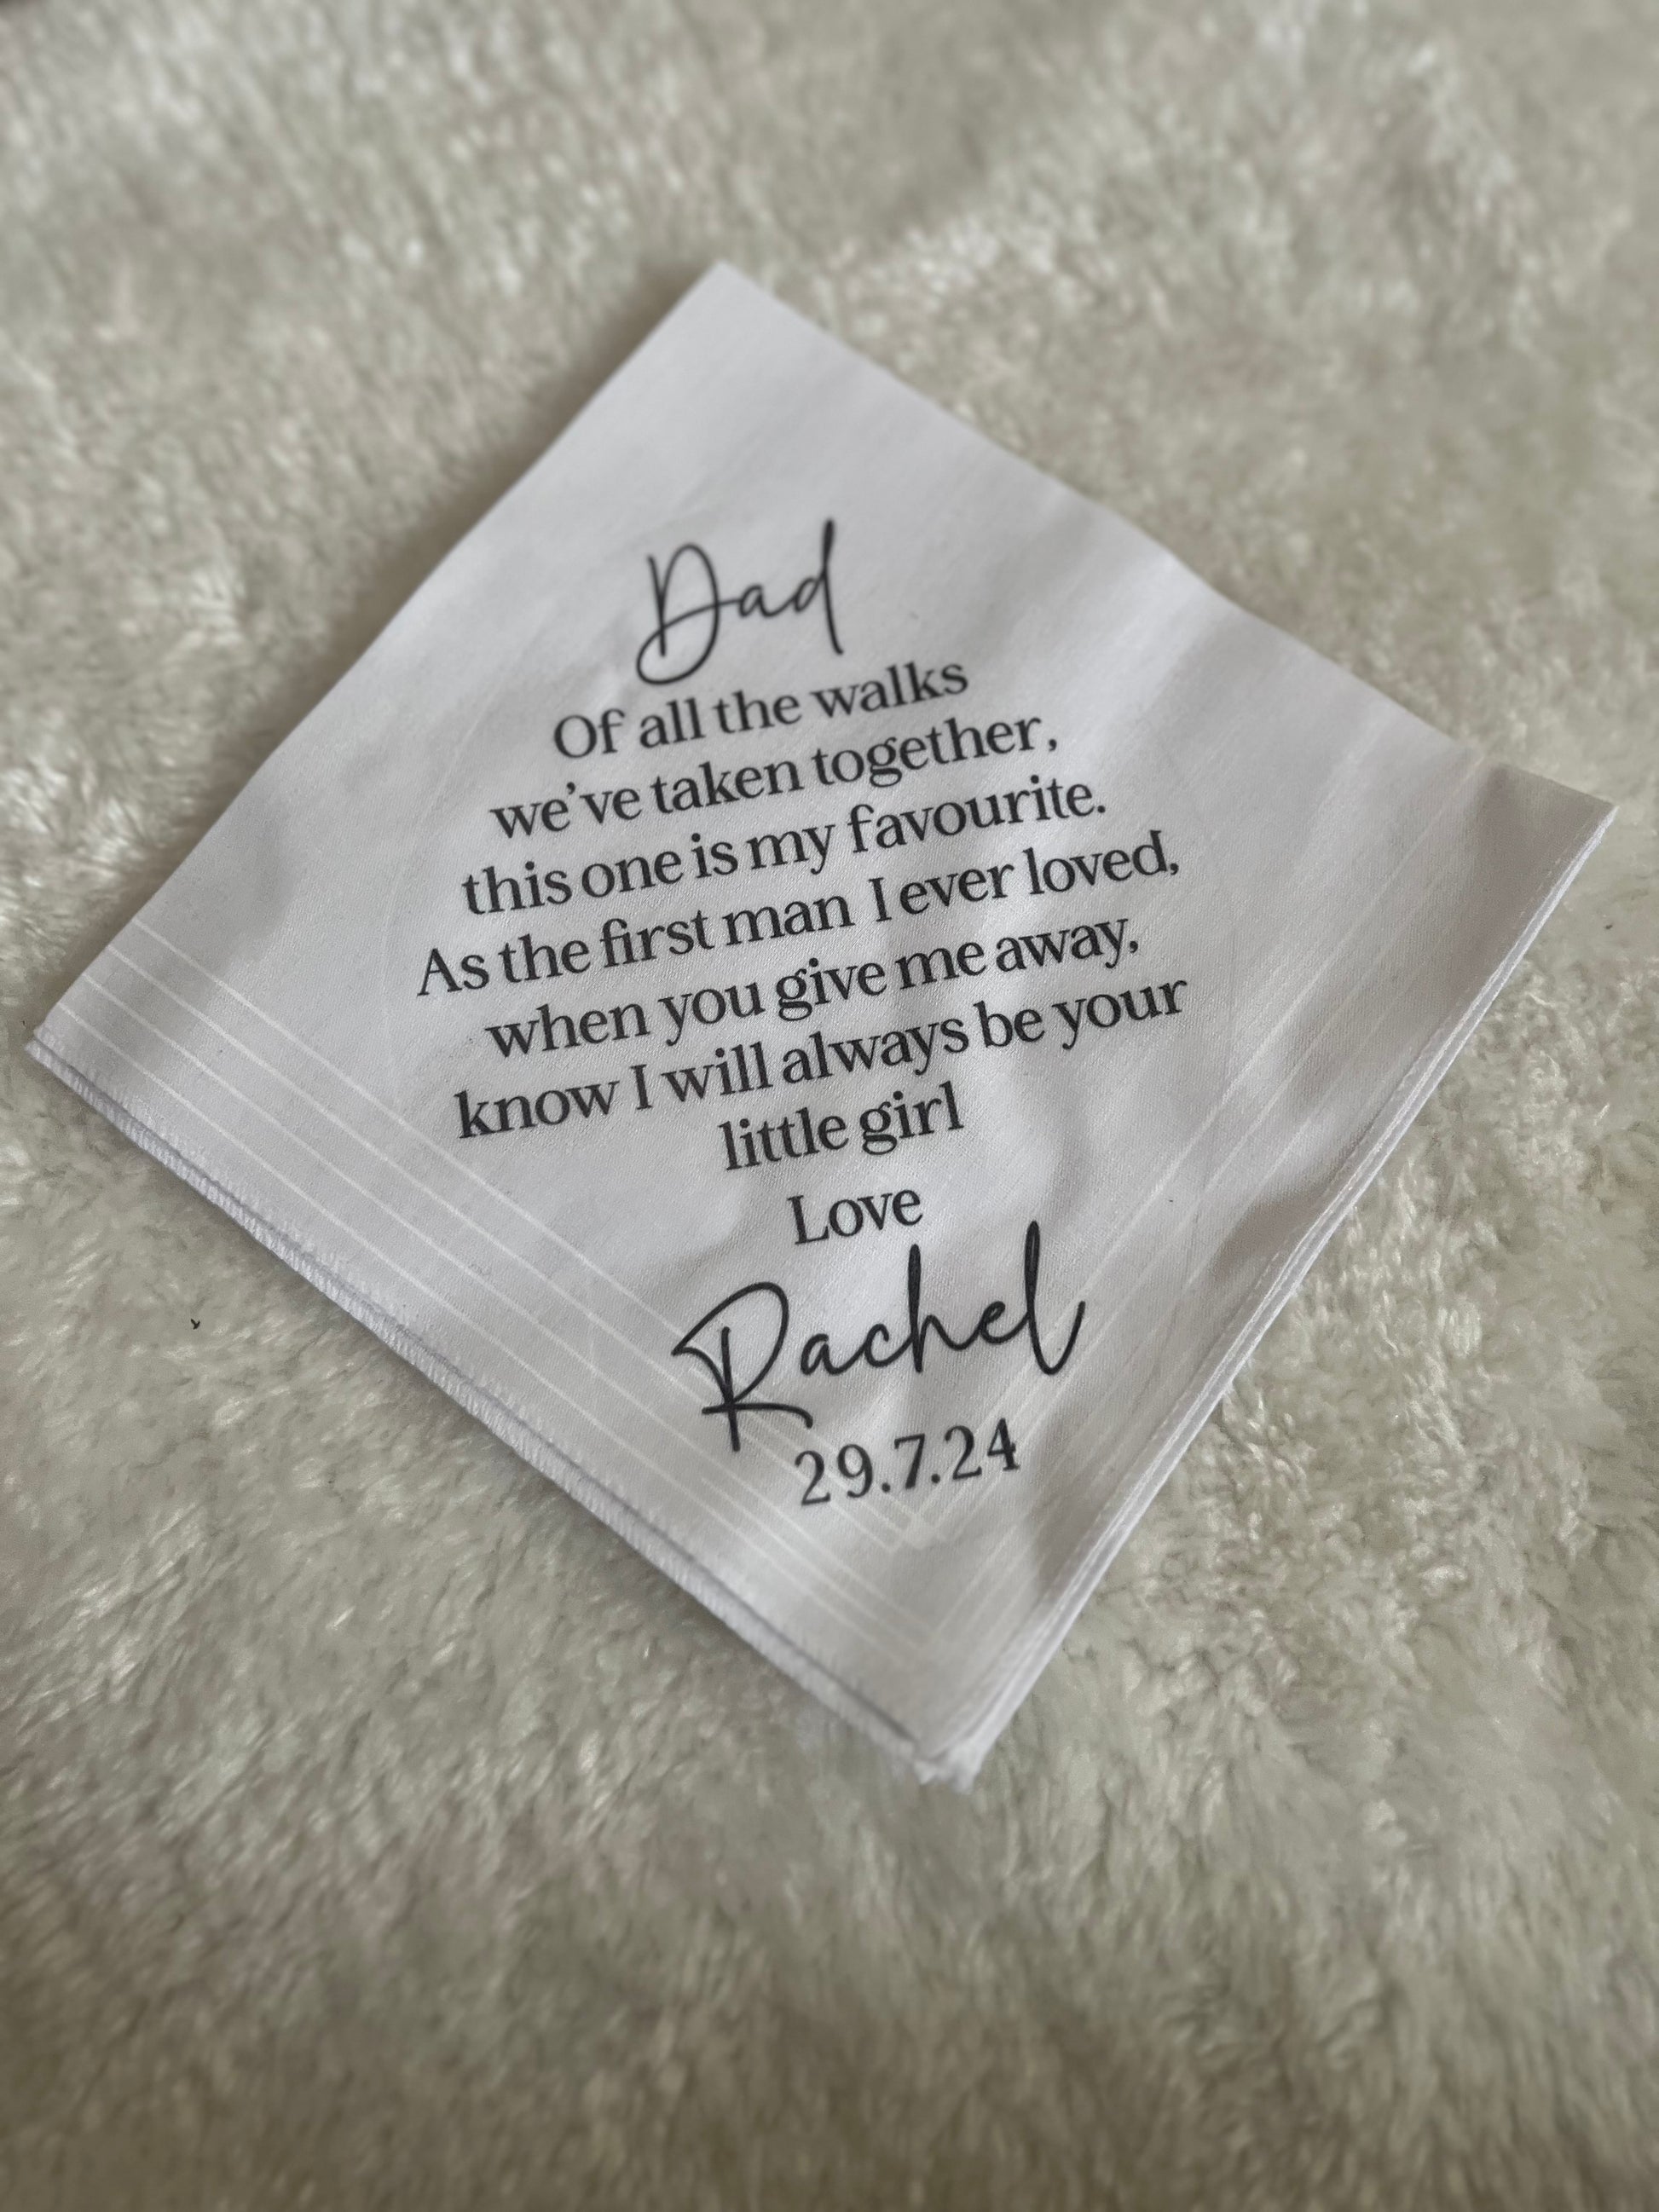 Dad
Of all the walks
we've taken together,
this one is my favourite.
As the first man I ever loved,
when you give me away,
know I will always be your
little girl
Love
Rachel
29.7.24